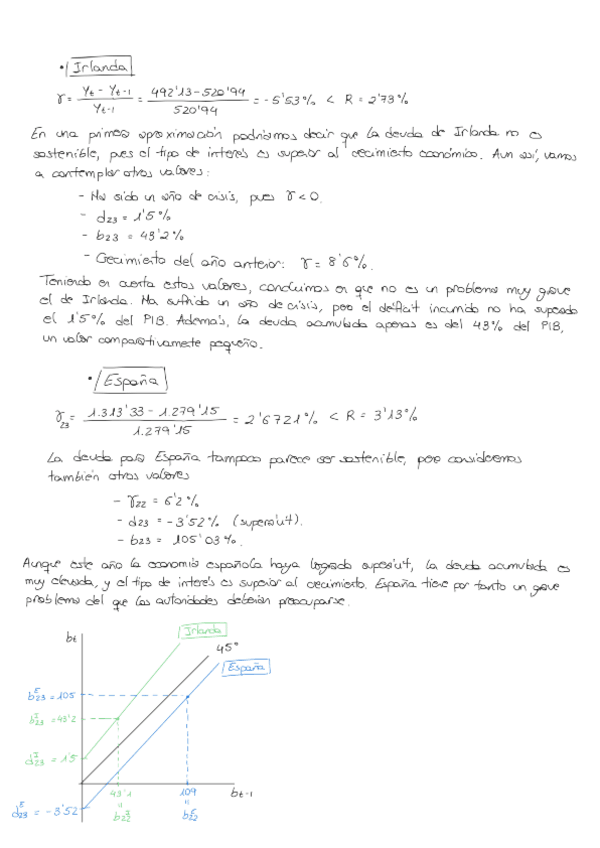 •/ Irlanda
γ = (Yt - Yt-1) / Yt-1 = (492'13 - 520'94) / 520'94 = -5'53% < R = 2'73%
En una primera aproximación podríamos decir que la deuda de Irlanda no es
sostenible, pues el tipo de interés es superior al crecimiento económico. Aun así, vamos
a contemplar otros valores:
- Ha sido un año de crisis, pues γ < 0.
- d23 = 1'5%
- b23 = 43'2%
- Crecimiento del año anterior: γ = 8'6%.
Teniendo en cuenta estos valores, concluimos en que no es un problema muy grave
el de Irlanda. Ha sufrido un año de crisis, pero el déficit incurrido no ha superado
el 1'5% del PIB. Además, la deuda acumulada apenas es del 43% del PIB,
un valor comparativamente pequeño.
•/ España
γ23 = (1.313'33 - 1.279'15) / 1.279'15 = 2'6721% < R = 3'13%
La deuda para España tampoco parece ser sostenible, pero consideremos
también otros valores
- γ22 = 6'2%
- d23 = -3'52% (superávit).
- b23 = 105'03%.
Aunque este año la economía española haya logrado superávit, la deuda acumulada es
muy elevada, y el tipo de interés es superior al crecimiento. España tiene por tanto un grave
problema del que las autoridades deberían preocuparse.
Irlanda
bt
45°
España
b^E23 = 105
b^I23 = 43'2
d^I23 = 1'5
43'1
109
bt-1
=
=
d^E23 = -3'52
b^I22
b^E22